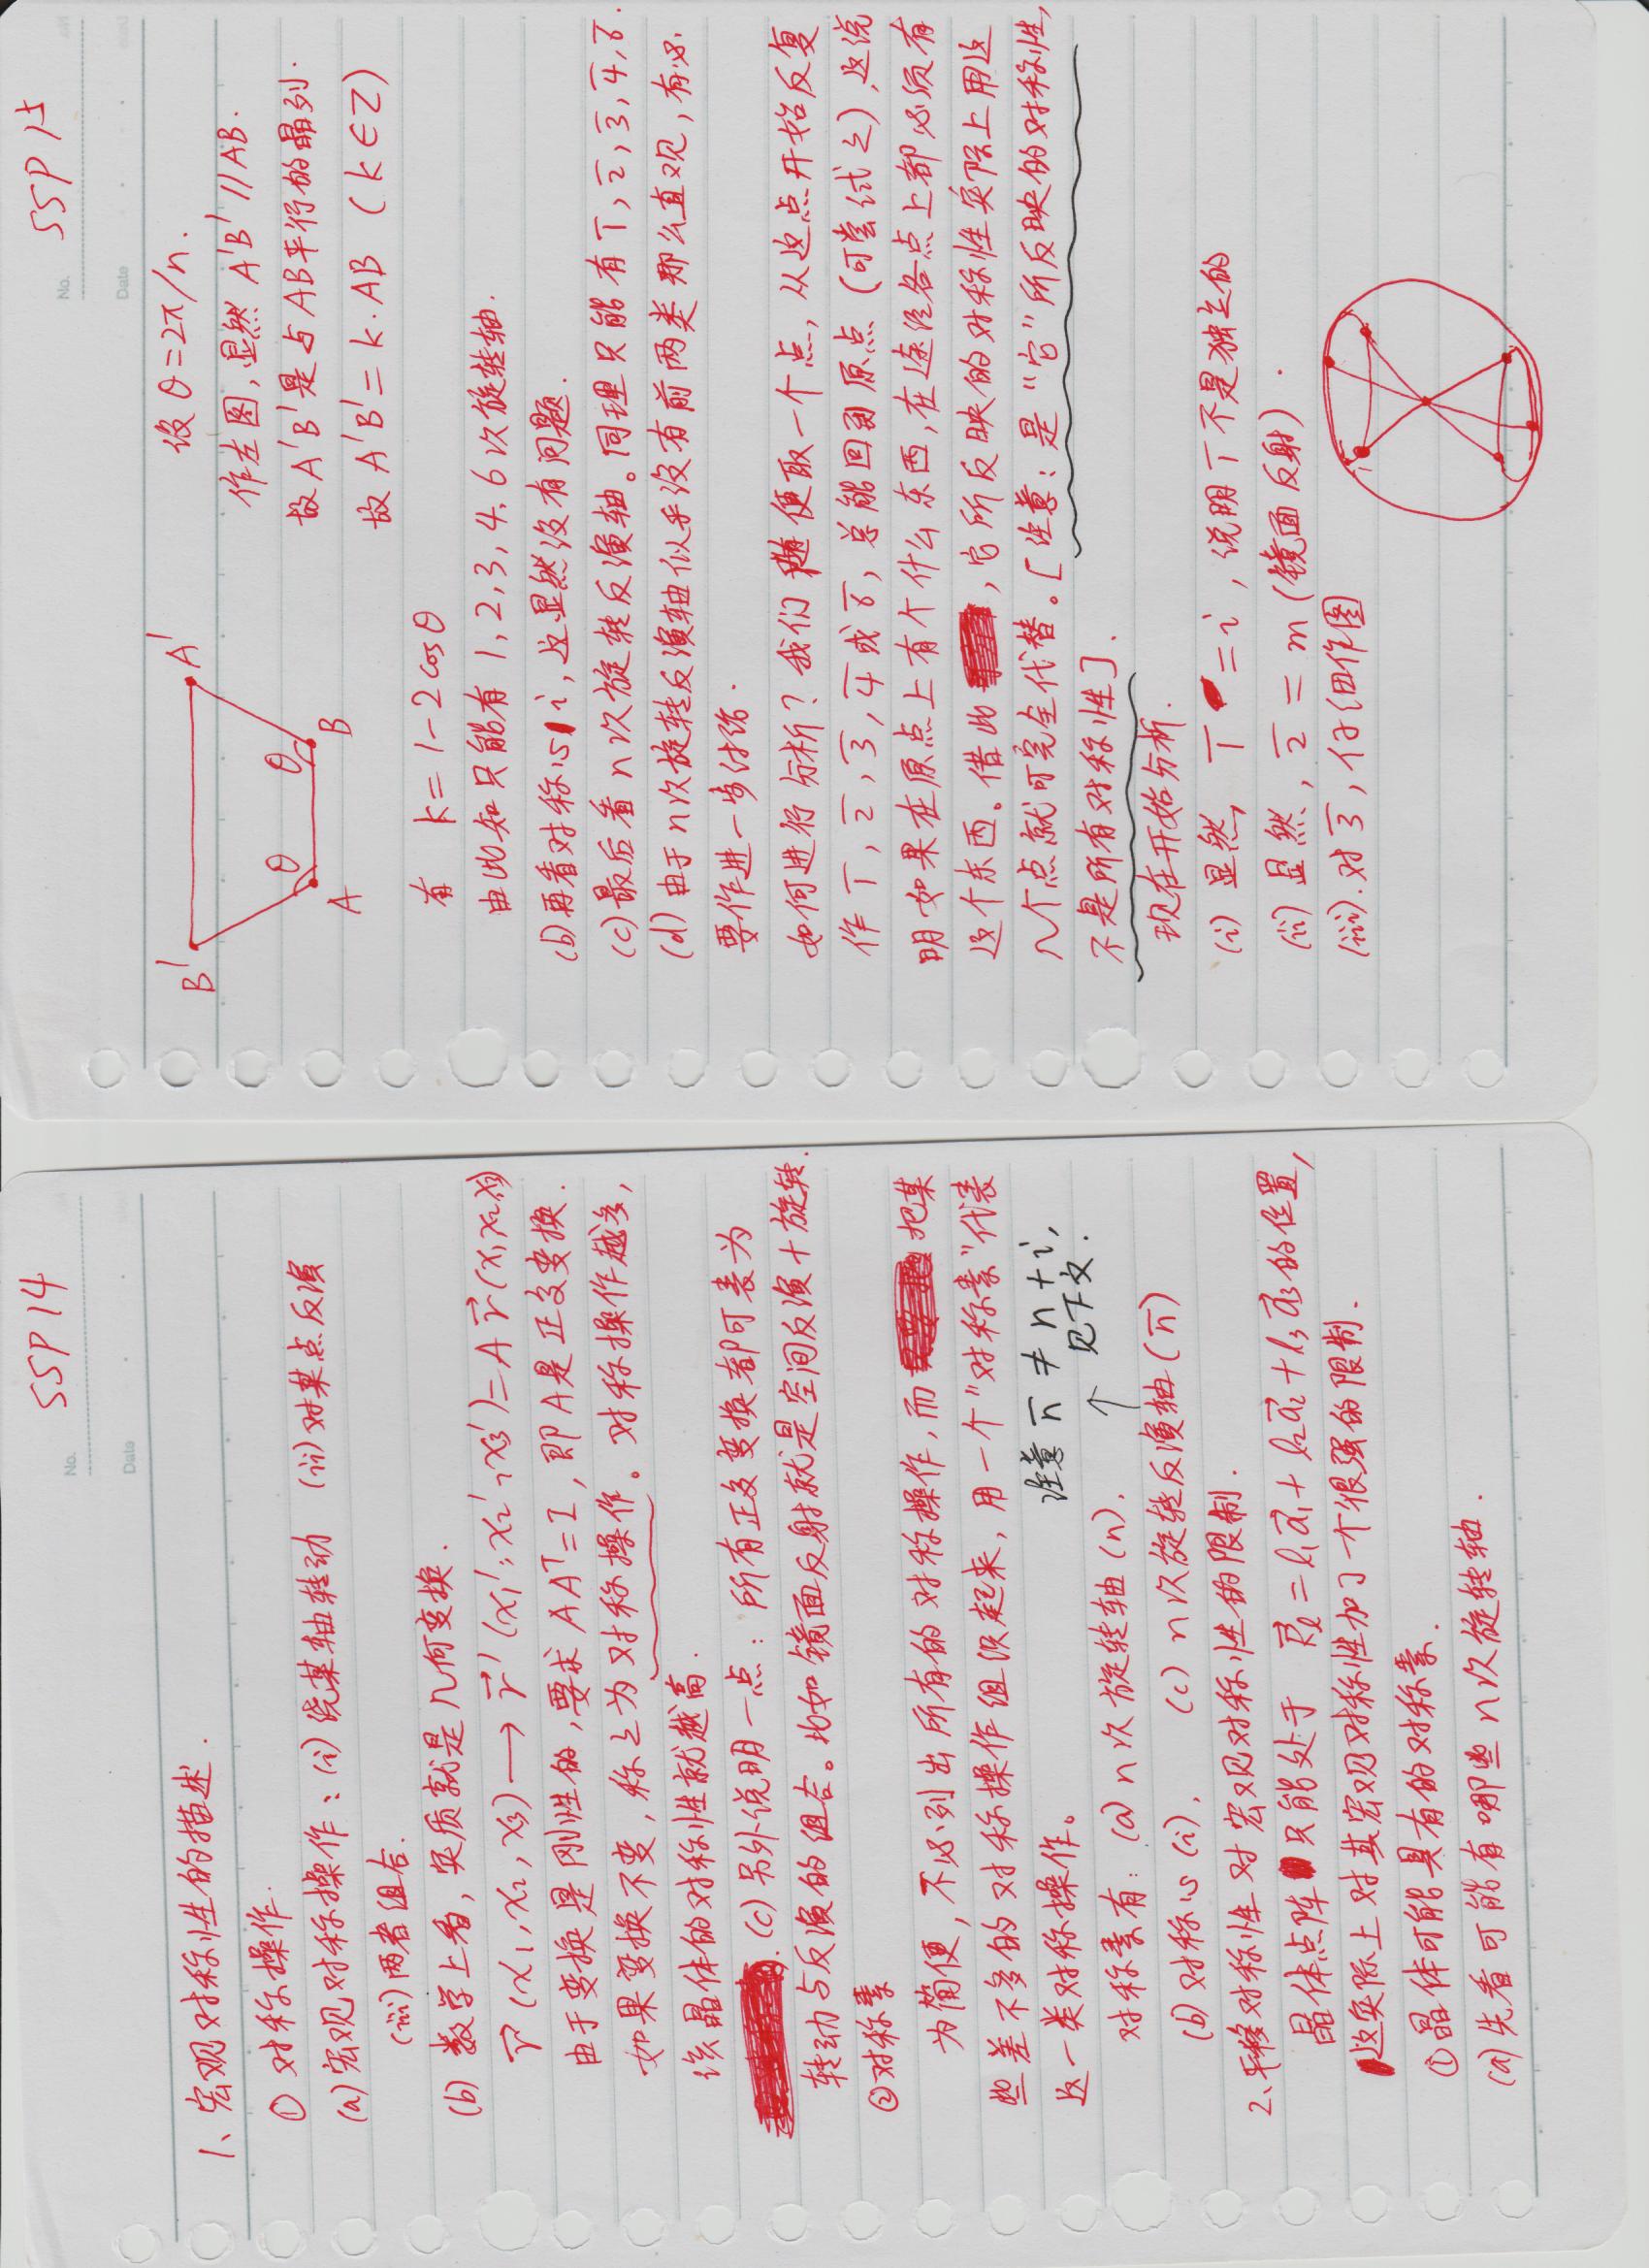 SSP 14
No.
Date
1、宏观对称性的描述.
① 对称操作.
(a) 宏观对称操作：(i) 绕某轴转动 (ii) 对某点反演
(iii) 两者组合.
(b) 数学上看，实质就是几何变换.
r⃗ (x₁, x₂, x₃) → r⃗' (x₁', x₂', x₃') = A r⃗ (x₁ x₂ x₃)
由于变换是刚性的，要求 AAᵀ = I，即 A 是正交变换.
如果变换不变，称之为对称操作。对称操作越多，
该晶体的对称性就越高.
(c) 另外说明一点：所有正交变换都可表为
转动与反演的组合。比如镜面反射就是空间反演+旋转.
②对称素
为简便，不必列出所有的对称操作，而把某
些差不多的对称操作组织起来，用一个"对称素"代表
这一类对称操作。
注意 n̅ ≠ n + i,
见下文.
↑
对称素有：(a) n次旋转轴 (n).
(b) 对称心 (i). (c) n次旋转反演轴 (n̅)
2、平移对称性对宏观对称性的限制.
晶体点阵只能处于 R⃗ₗ = l₁a⃗₁ + l₂a⃗₂ + l₃a⃗₃ 的位置,
这实际上对其宏观对称性加了一个很强的限制.
①晶体可能具有的对称素.
(a) 先看可能有哪些 n次旋转轴.
SSP 15
No.
Date
B' A'
θ θ
A B
设 θ = 2π/n.
作左图, 显然 A'B' // AB.
故 A'B' 是与 AB 平行的晶列.
故 A'B' = k·AB (k∈Z)
有 k = 1 - 2cosθ
由此知只能有 1, 2, 3, 4, 6 次旋转轴.
(b) 再看对称心 i, 这显然没有问题.
(c) 最后看 n次旋转反演轴。同理只能有 1̅, 2̅, 3̅, 4̅, 6̅.
(d) 由于 n次旋转反演轴似乎没有前两类那么直观，有必
要作进一步讨论.
如何进行分析？我们随便取一个点，从这点开始反复
作 1̅, 2̅, 3̅, 4̅ 或 6̅, 总能回到原点 (可尝试之), 这说
明如果在原点上有个什么东西，在途径各点上都必须有
这个东西。借此，它所反映的对称性实际上用这
几个点就可完全代替。[注意：是"它"所反映的对称性，
不是所有对称性].
现在开始分析.
(i) 显然, 1̅ = i, 说明 1̅ 不是独立的
(ii) 显然, 2̅ = m (镜面反射).
(iii). 对 3̅, 仔细作图